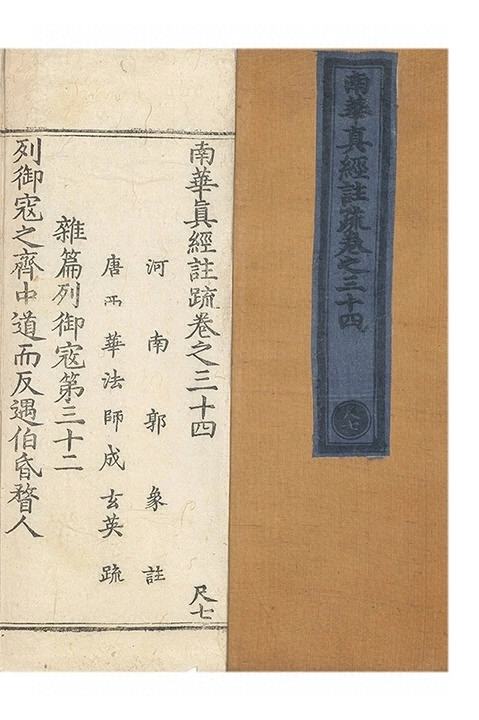 南華真經註疏卷之三十四
尺七
南華眞經註疏卷之三十四 尺七
河南郭象註
唐西華法師成玄英疏
雜篇列御寇第三十二
列御寇之齊中道而反遇伯昏瞀人